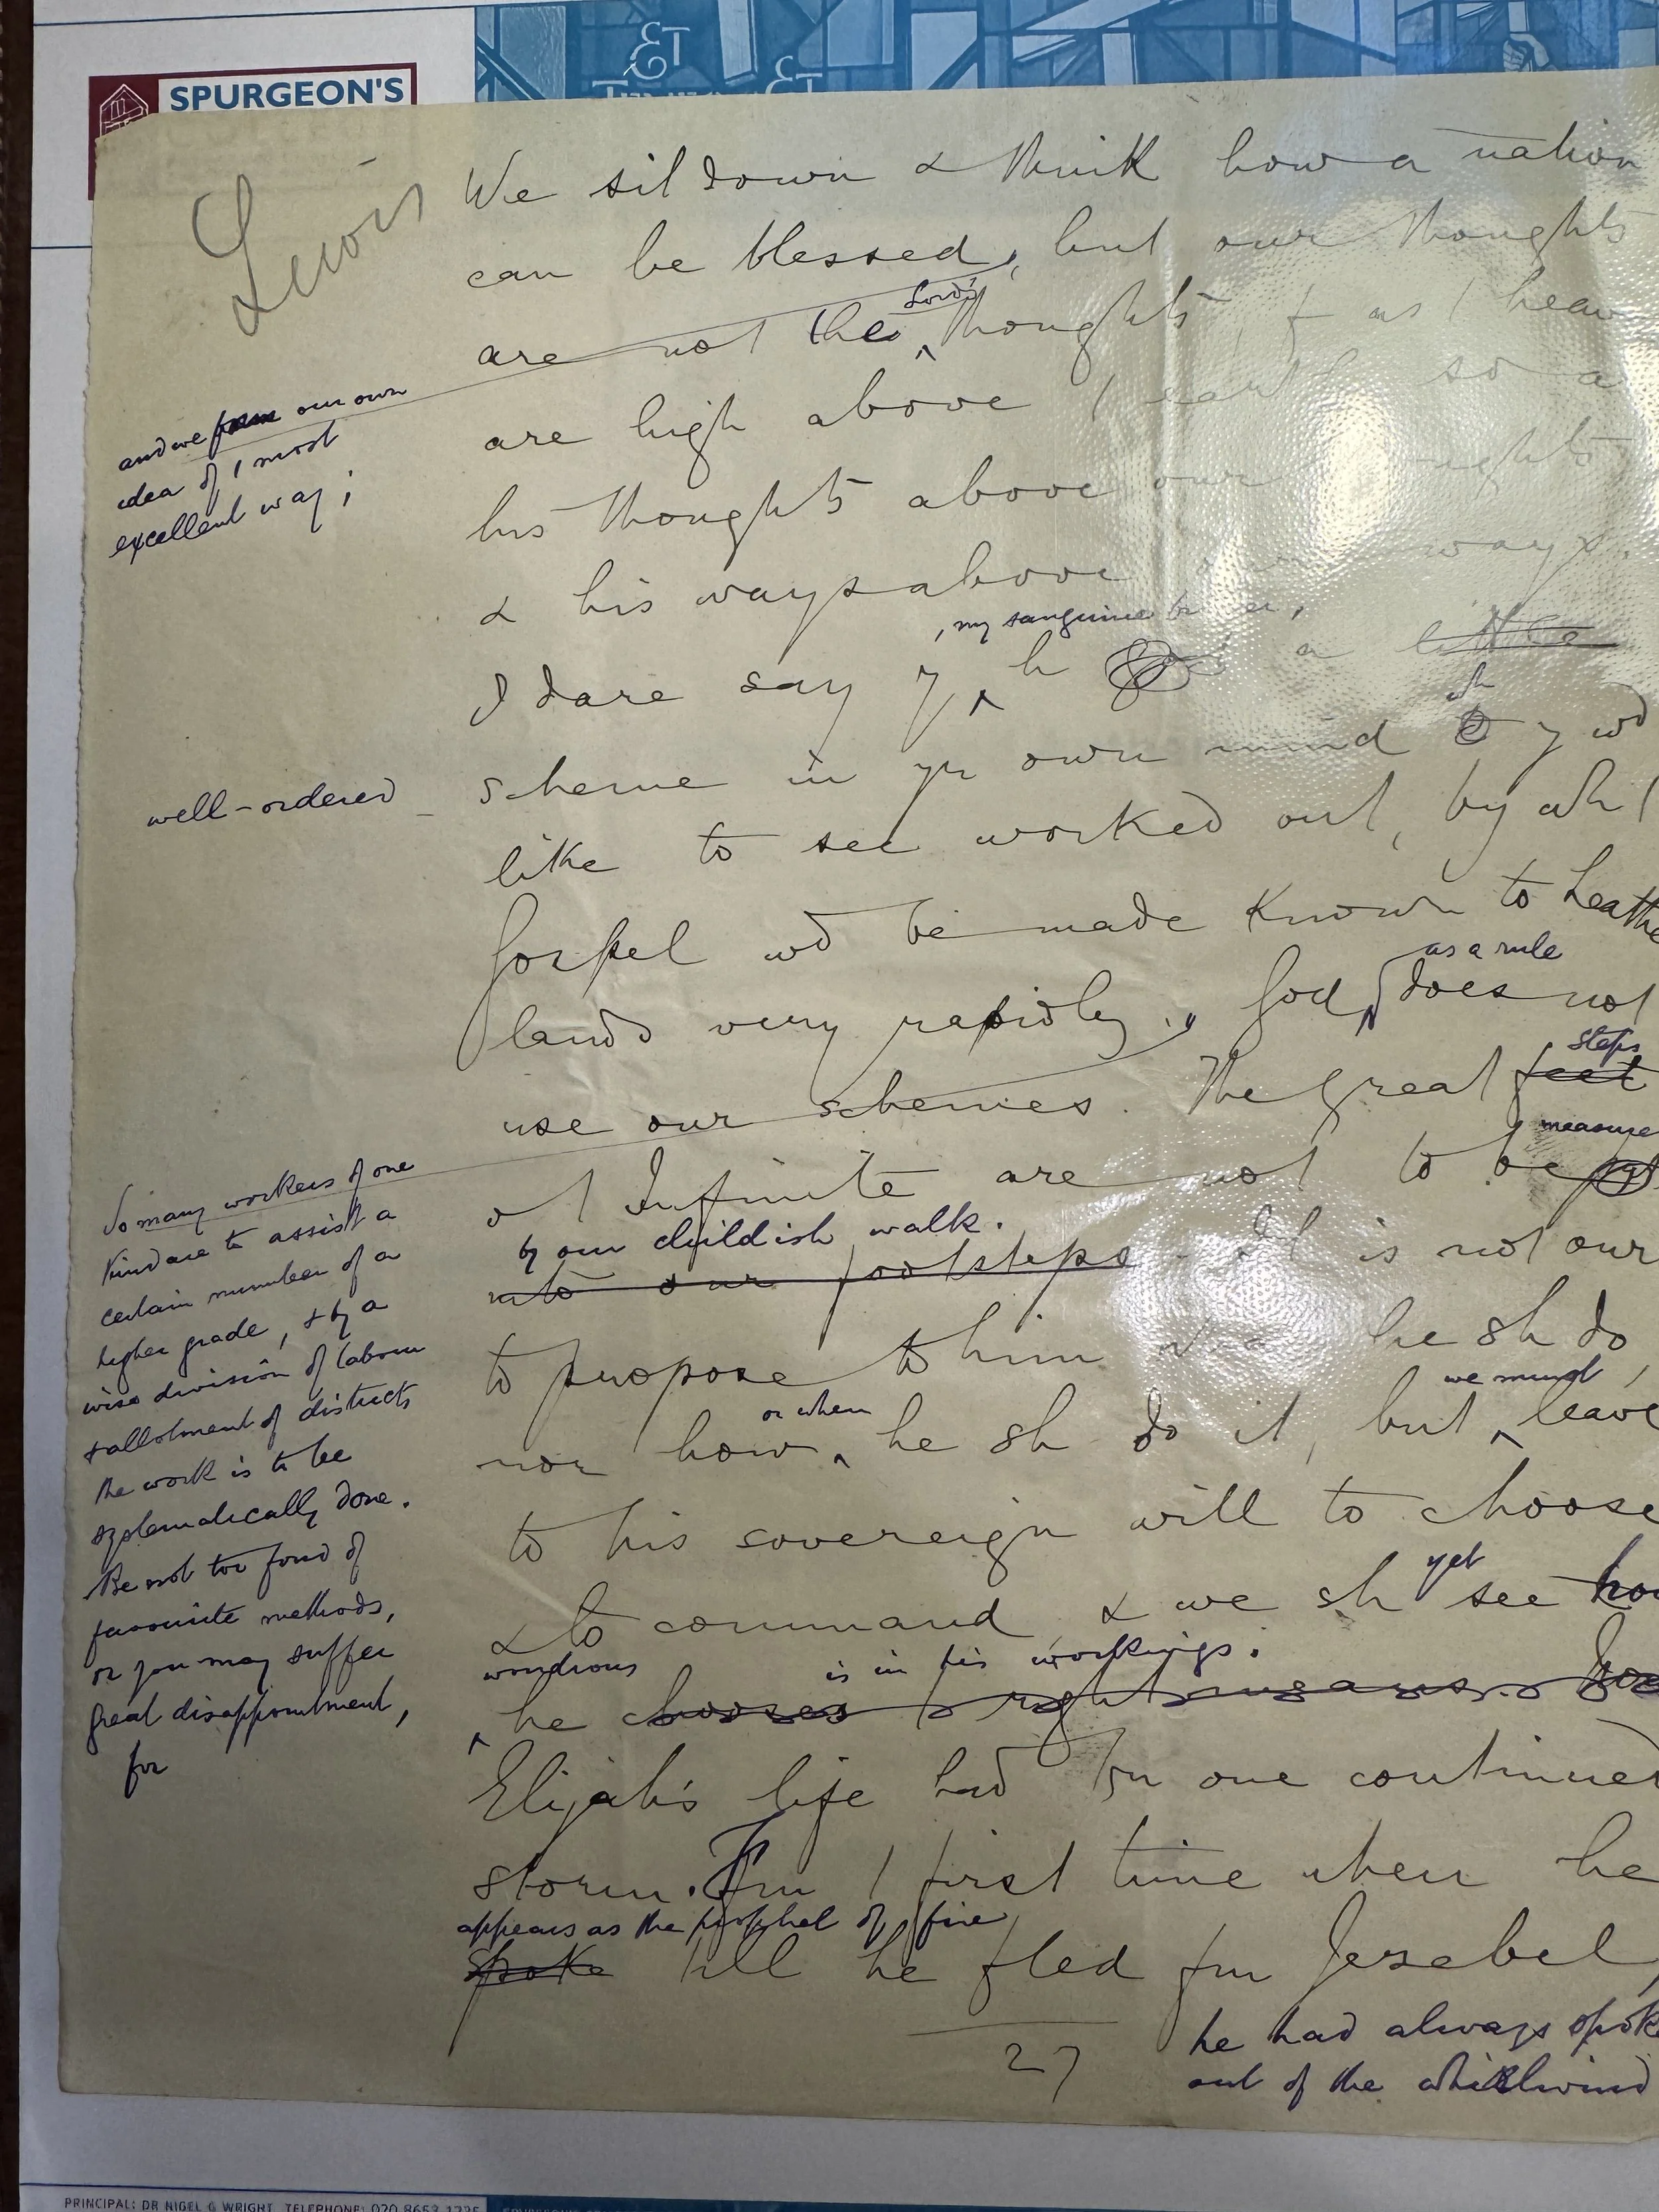 SPURGEON'S
ET
ET
Lewis
We sit down & think how a nation
can be blessed, but our thoughts
are not the Lord's thoughts, & as / heav
are high above / earth so a
his thoughts above our thoughts
& his ways above our ways.
, my sanguine brother,
I dare say y h a little
wh
scheme in yr own mind y wd
like to see worked out, by wh /
Gospel wd be made known to heathe
as a rule
lands very rapidly., God does not
steps
use our schemes. The great feet
measure
of Infinite are not to be
by our childish walk.
into our footsteps. It is not our
to propose to him he sh do
or when we must
nor how he sh do it, but leave
to his sovereign will to choose
yet
& to command, & we sh see how
wondrous is in his workings.
he chooses / right means.
Elijah's life had bn one continued
storm. Fm / first time when he
appears as the prophet of fire
spoke till he fled fm Jezebel,
he had always spoke
out of the whirlwind
27
and we form our own
idea of / most
excellent way;
well-ordered
So many workers of one
kind are to assist a
certain number of a
higher grade, & by a
wise division of labour
& allotment of districts
the work is to be
systematically done.
Be not too fond of
favourite methods,
or you may suffer
great disappointment,
for
PRINCIPAL: DR NIGEL G WRIGHT TELEPHONE: 020 8653